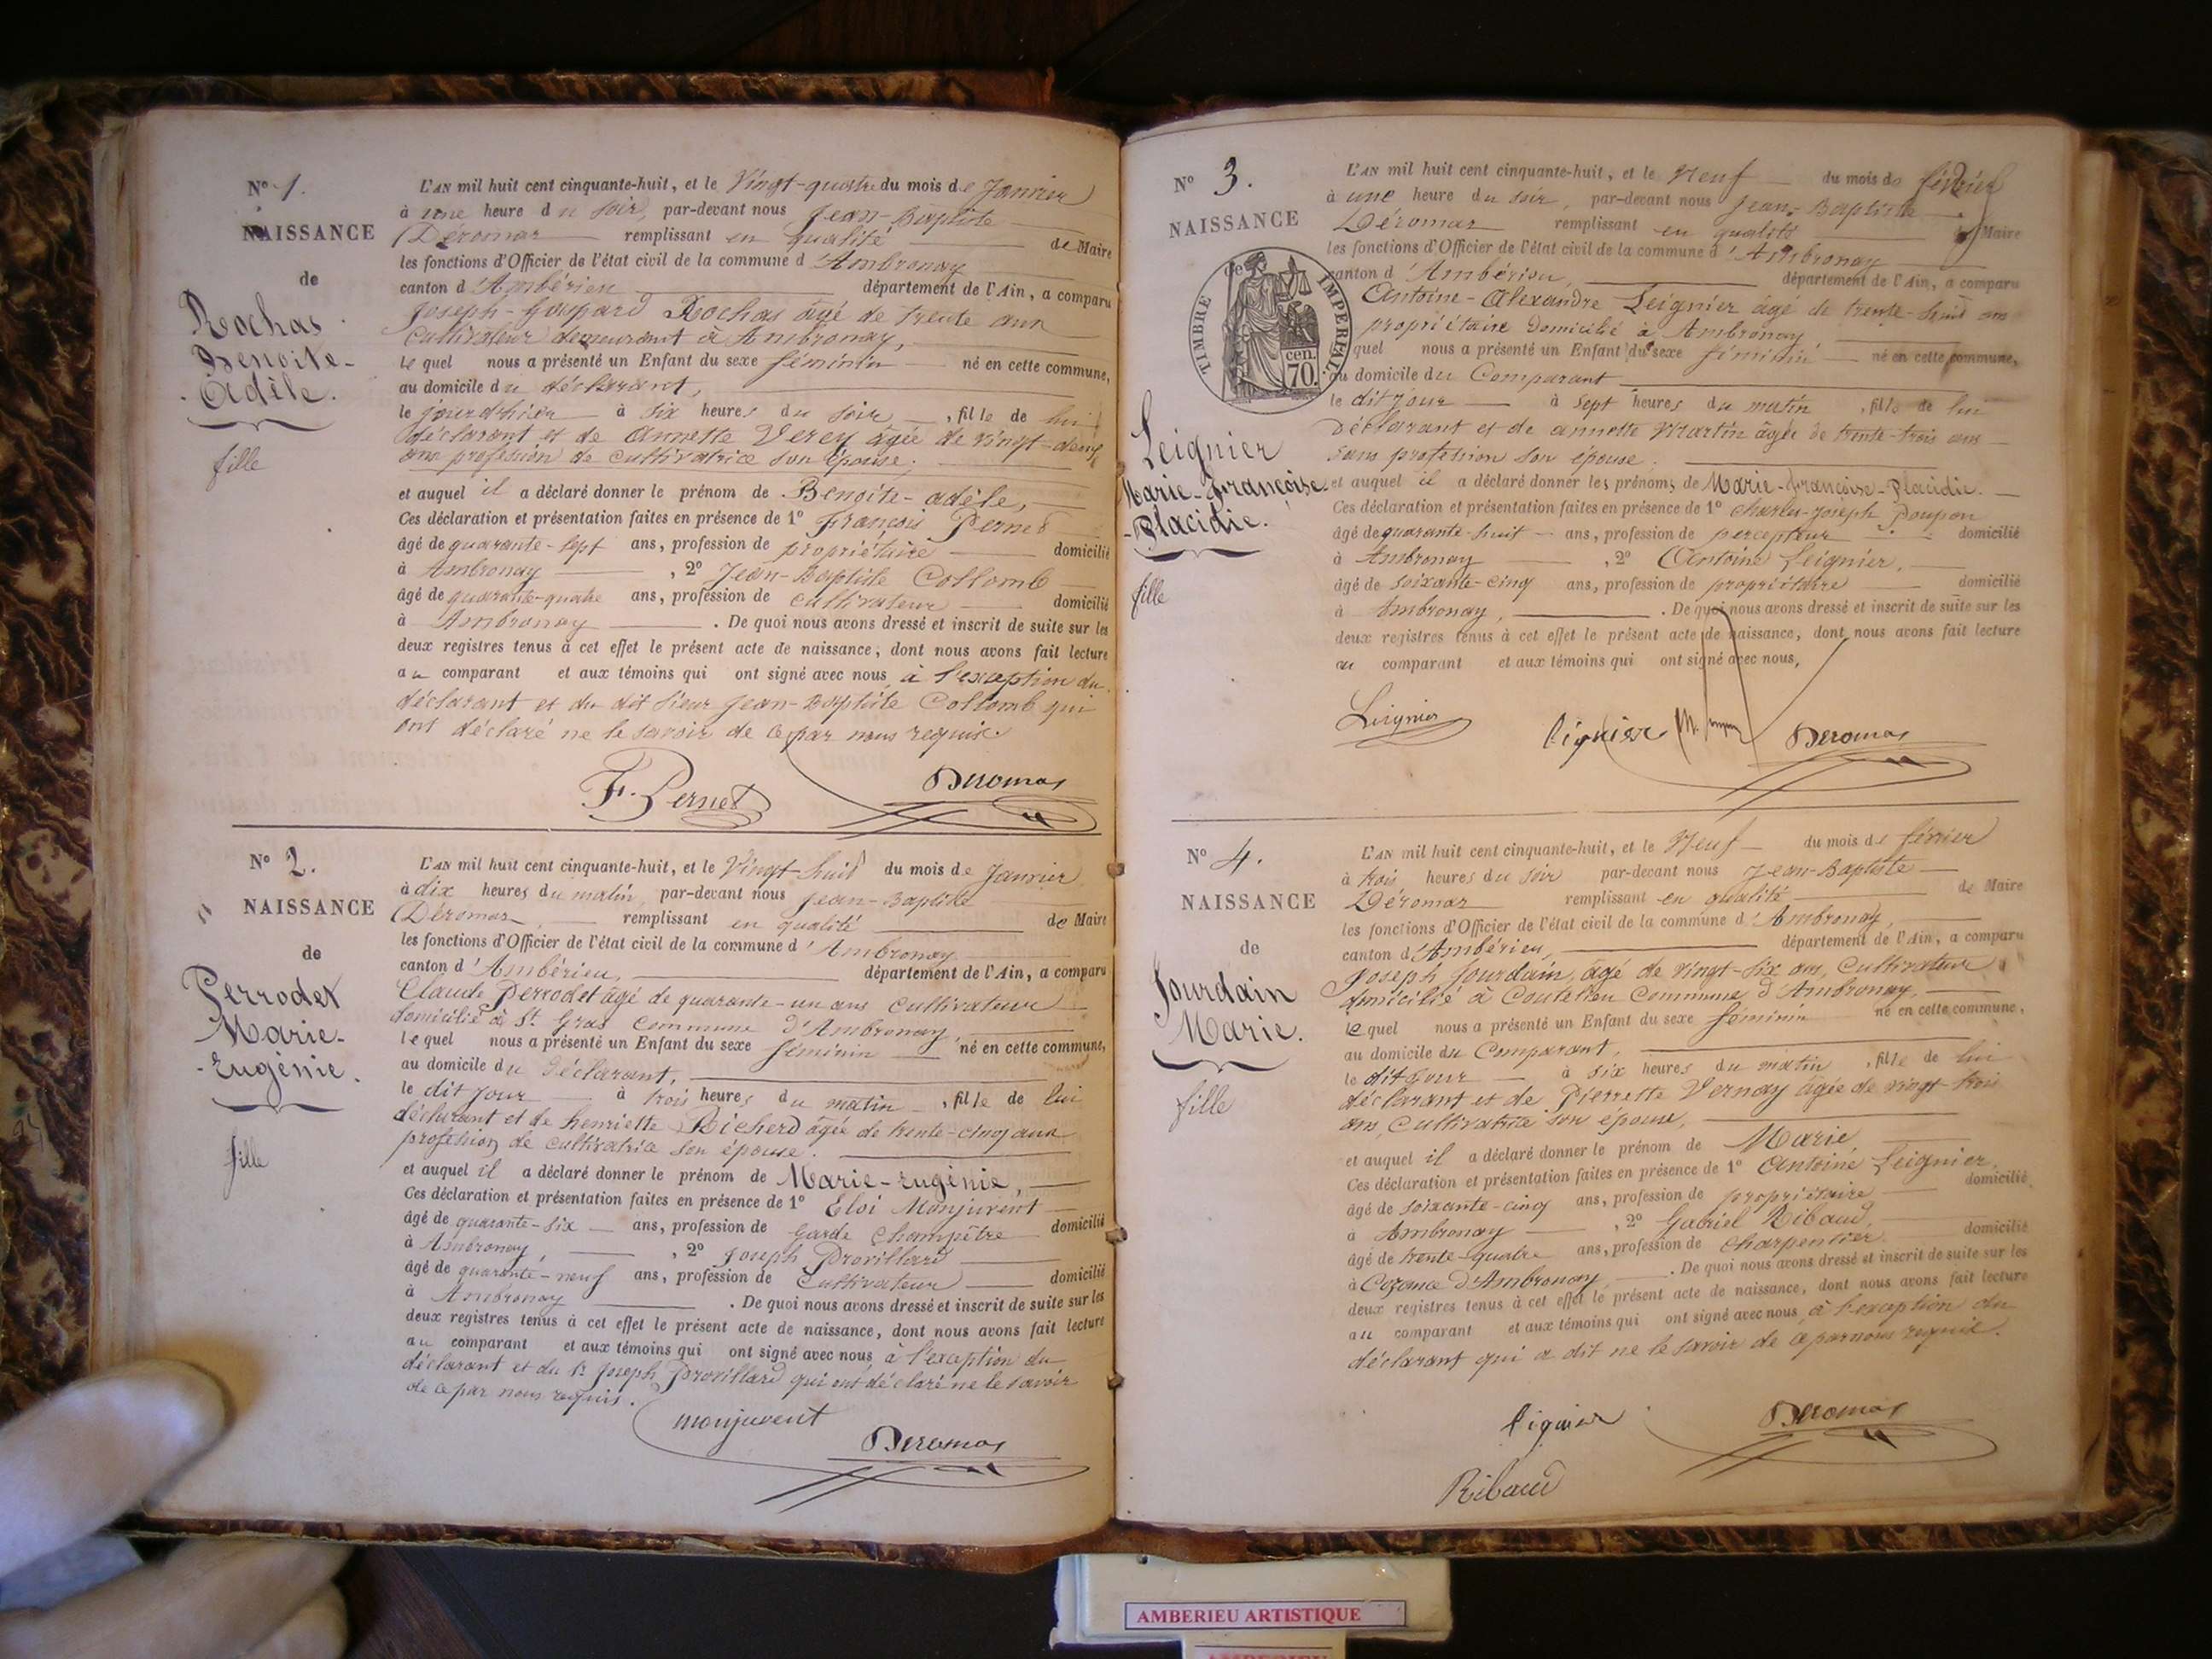 N° 1.
NAISSANCE
de
Rochas
Benoite-
Adèle.
fille
L'AN mil huit cent cinquante-huit, et le Vingt-quatre du mois de Janvier
à une heure du soir, par-devant nous Jean-Baptiste
Déromas remplissant en qualité de Maire
les fonctions d'Officier de l'état civil de la commune d'Ambronay
canton d'Ambérieu département de l'Ain, a comparu
Joseph-Gaspard Rochas âgé de trente ans
cultivateur demeurant à Ambronay,
lequel nous a présenté un Enfant du sexe féminin né en cette commune,
au domicile du déclarant,
le jourd'hier à six heures du soir, fille de lui
déclarant et de Annette Verey âgée de vingt-deux
ans profession de cultivatrice son épouse;
et auquel il a déclaré donner le prénom de Benoite-adèle,
Ces déclaration et présentation faites en présence de 1° François Pernet
âgé de quarante-sept ans, profession de propriétaire domicilié
à Ambronay, 2° Jean-Baptiste Collomb
âgé de quarante-quatre ans, profession de cultivateur domicilié
à Ambronay. De quoi nous avons dressé et inscrit de suite sur les
deux registres tenus à cet effet le présent acte de naissance, dont nous avons fait lecture
au comparant et aux témoins qui ont signé avec nous à l'exception du
déclarant et du dit sieur Jean-Baptiste Collomb qui
ont déclaré ne le savoir de ce par nous requis.
F. Pernet Deromas
N° 2.
NAISSANCE
de
Perrodet
Marie-
-Eugénie.
fille
L'AN mil huit cent cinquante-huit, et le Vingt-huit du mois de Janvier
à dix heures du matin, par-devant nous Jean-Baptiste
Déromas remplissant en qualité de Maire
les fonctions d'Officier de l'état civil de la commune d'Ambronay
canton d'Ambérieu, département de l'Ain, a comparu
Claude Perrodet âgé de quarante-un ans cultivateur
domicilié à St. Gras commune d'Ambronay
lequel nous a présenté un Enfant du sexe féminin né en cette commune,
au domicile du déclarant,
le dit jour à trois heures du matin, fille de lui
déclarant et de henriette Bicherd âgée de trente-cinq ans
profession de cultivatrice son épouse.
et auquel il a déclaré donner le prénom de Marie-Eugénie,
Ces déclaration et présentation faites en présence de 1° Eloi Monjuvent
âgé de quarante-six ans, profession de Garde Champêtre domicilié
à Ambronay, 2° Joseph Provillard
âgé de quarante-neuf ans, profession de Cultivateur domicilié
à Ambronay. De quoi nous avons dressé et inscrit de suite sur les
deux registres tenus à cet effet le présent acte de naissance, dont nous avons fait lecture
au comparant et aux témoins qui ont signé avec nous à l'exception du
déclarant et du Sr Joseph Provillard qui ont déclaré ne le savoir
de ce par nous requis.
monjuvent
Deromas
N° 3.
NAISSANCE
de
TIMBRE IMPERIAL
70. cen.
Leignier
Marie-Françoise-
-Placidie.
fille
L'AN mil huit cent cinquante-huit, et le Neuf du mois de février
à une heure du soir, par-devant nous Jean-Baptiste
Déromas remplissant en qualité de Maire
les fonctions d'Officier de l'état civil de la commune d'Ambronay
canton d'Ambérieu, département de l'Ain, a comparu
Antoine-Alexandre Leignier âgé de trente-huit ans
propriétaire domicilié à Ambronay
quel nous a présenté un Enfant du sexe féminin né en cette commune,
au domicile du Comparant
le dit jour à sept heures du matin, fille de lui
Déclarant et de annette Martin âgée de trente-trois ans
sans profession son épouse.
et auquel il a déclaré donner les prénoms de Marie-Françoise-Placidie.
Ces déclaration et présentation faites en présence de 1° Charles-Joseph Poupon
âgé de quarante-huit ans, profession de percepteur domicilié
à Ambronay, 2° Antoine Leignier,
âgé de soixante-cinq ans, profession de propriétaire domicilié
à Ambronay,. De quoi nous avons dressé et inscrit de suite sur les
deux registres tenus à cet effet le présent acte de naissance, dont nous avons fait lecture
au comparant et aux témoins qui ont signé avec nous,
Leignier lignier Deromas
N° 4.
NAISSANCE
de
Jourdain
Marie.
fille
L'AN mil huit cent cinquante-huit, et le Neuf du mois de février
à trois heures du soir par-devant nous Jean-Baptiste
Déromas remplissant en qualité de Maire
les fonctions d'Officier de l'état civil de la commune d'Ambronay,
canton d'Ambérieu, département de l'Ain, a comparu
Joseph Jourdain, âgé de vingt-six ans, Cultivateur
domicilié à Coutelieu Commune d'Ambronay,
lequel nous a présenté un Enfant du sexe féminin né en cette commune,
au domicile du Comparant,
le dit jour à six heures du matin, fille de lui
déclarant et de Pierrette Vernay âgée de vingt-trois
ans, Cultivatrice son épouse,
et auquel il a déclaré donner le prénom de Marie,
Ces déclaration et présentation faites en présence de 1° Antoine Leignier,
âgé de soixante-cinq ans, profession de propriétaire domicilié
à Ambronay, 2° Gabriel Ribaud,
âgé de trente-quatre ans, profession de Charpentier domicilié
à d'Ambronay,. De quoi nous avons dressé et inscrit de suite sur les
deux registres tenus à cet effet le présent acte de naissance, dont nous avons fait lecture
au comparant et aux témoins qui ont signé avec nous, à l'exception du
déclarant qui a dit ne le savoir de ce par nous requis.
lignier Deromas
Ribaud
AMBERIEU ARTISTIQUE
AMBERIEU